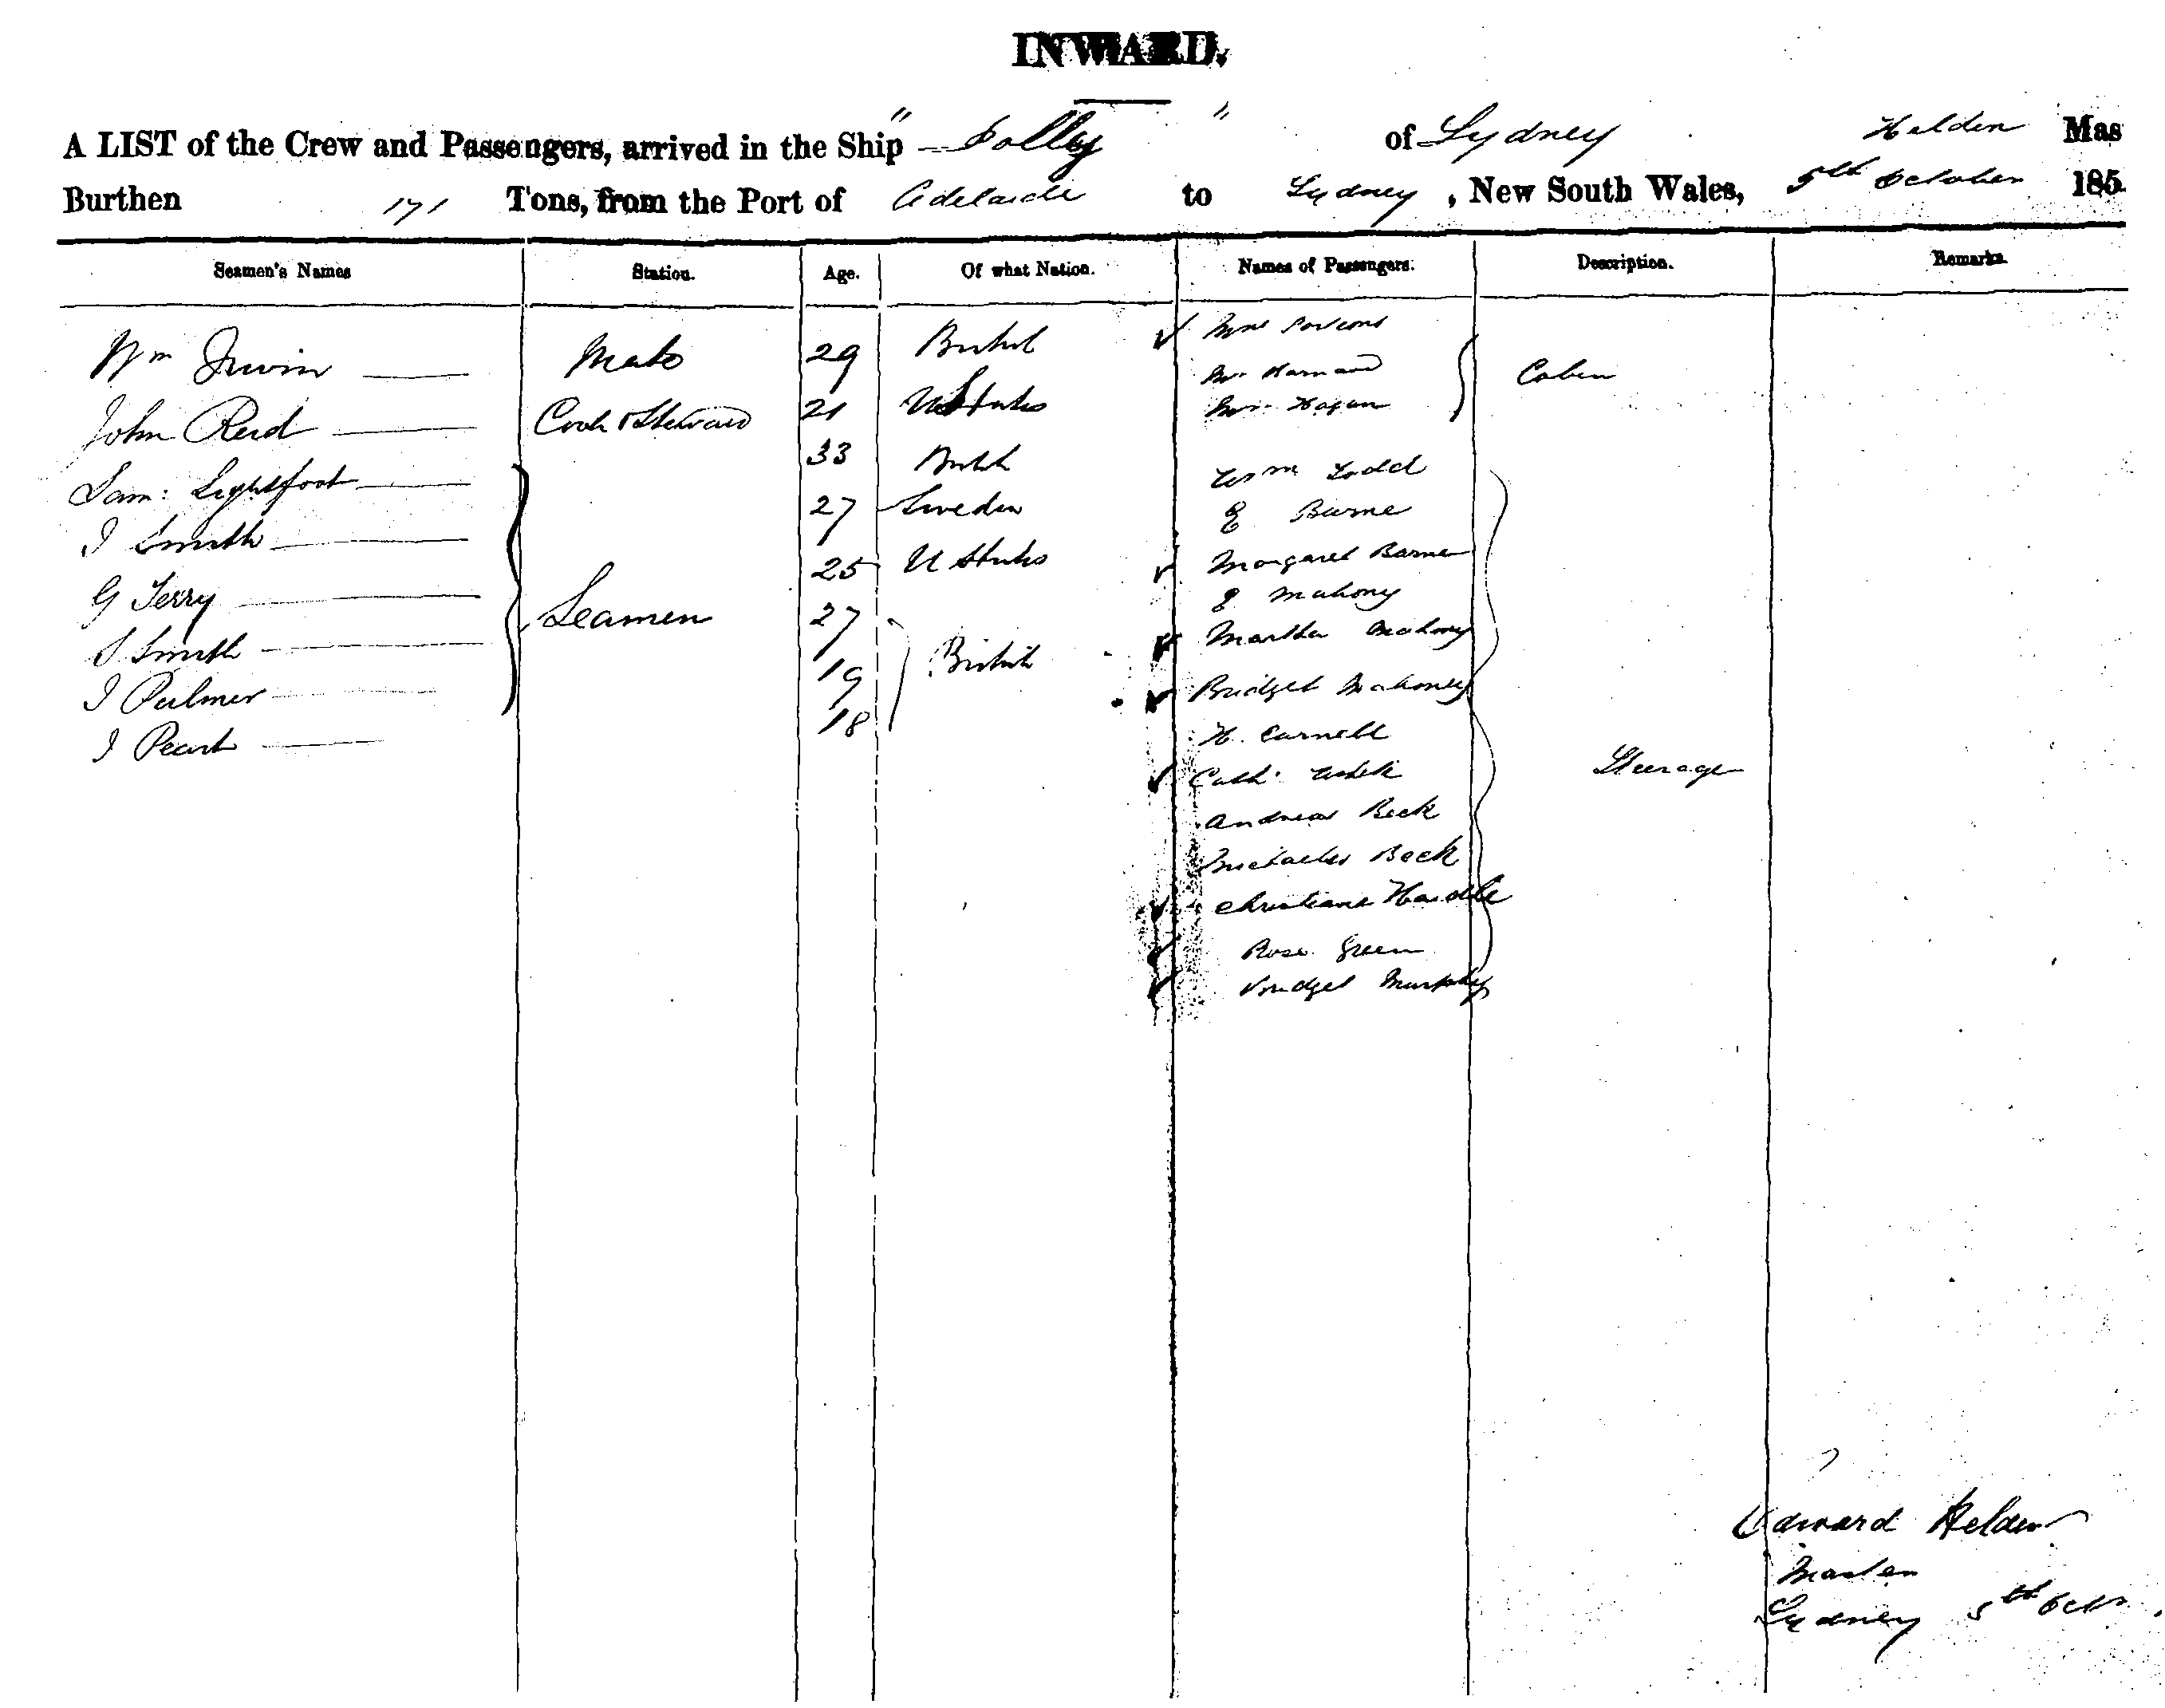 INWARD.
A LIST of the Crew and Passengers, arrived in the Ship " Dolly " of Sydney Helden Mas
Burthen 171 Tons, from the Port of Adelaide to Sydney, New South Wales, 5th October 185
Seamen's Names Station. Age. Of what Nation. Names of Passengers. Description. Remarks.
Wm Irwin Mate 29 British
John Reid Cook & Steward 21 U States
Sam: Lightfoot 33 British
I Smith 27 Sweden
G Terry 25 U States
S Smith Seamen 27 British
I Palmer 19
I Peart 18
Mrs Parsons
Mr Barnard Cabin
Mr Hogan
Wm Todd
E Barne
Margaret Barne
E Mahony
Martha Mahony
Bridget Mahoney
H. Carnell
Cath. White Steerage
Andreas Beck
Beck
Christiana
Rose Green
Bridget Murphy
Edward Helden
Master
Sydney 5th Octr